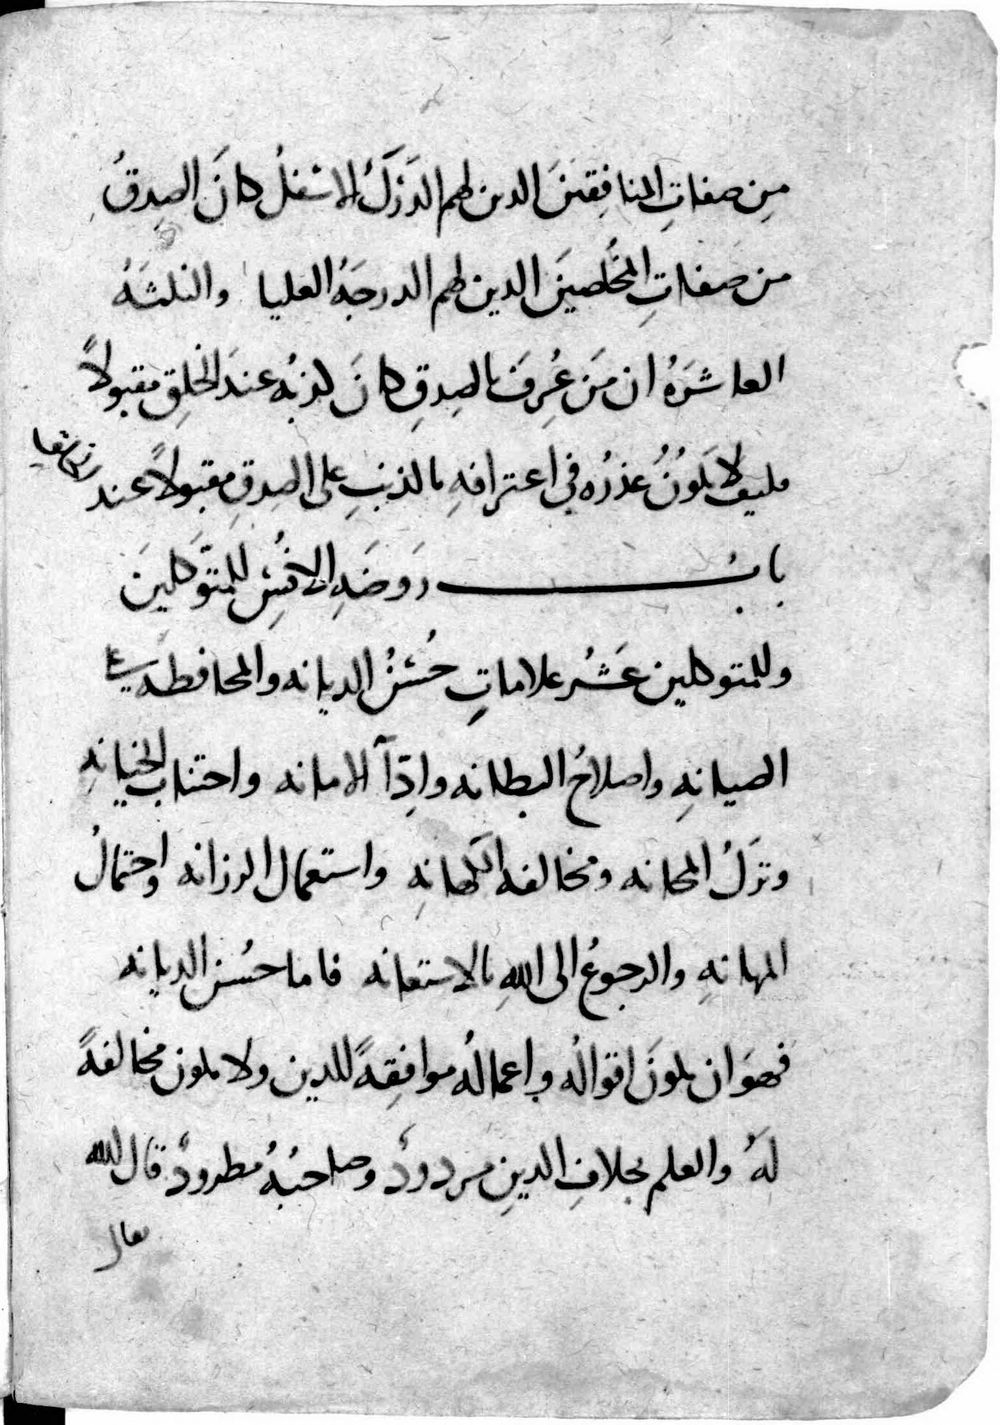 من صفاتِ المنافِقينَ الذين لهم الدَرْكُ الاسْفلُ كانَ الصِدقُ
من صفاتِ المخلَصينَ الذين لهم الدرجَةُ العليا والنكتَةُ
العاشرَةُ ان مَن عُرِفَ بالصِدقِ كانَ كذبُه عندَ الخلقِ مقبولاً
فكيف لا يكوُنُ عذرُه في اعترافهِ بالذنبِ على الصِدقِ مقبولاً عند الحق تعالى
بابُ رَوضَةِ الانْسِ للمتوَكلينَ
وللمتوكلين عَشْرُ علاماتٍ حُسْنُ الديانه والمحافظه على
الصيانهِ واصلاحُ البطانه وادآ الامانه واجتناب الخيانهِ
وترَكُ المجانه ومخالفه الكهانهِ واستعمال الرزانه واحتمالُ
المهانهِ والرجوعُ الى اللهِ بالاستعانه فاما حسُن الديانه
فهوَ ان يكونَ اقوالُه واعمالُه موافِقةً للدين ولا يكون مخالفةً
لهُ والعلم بخلافِ الدينِ مردودٌ وصاحبُهُ مطرودٌ قال الله
تعالى